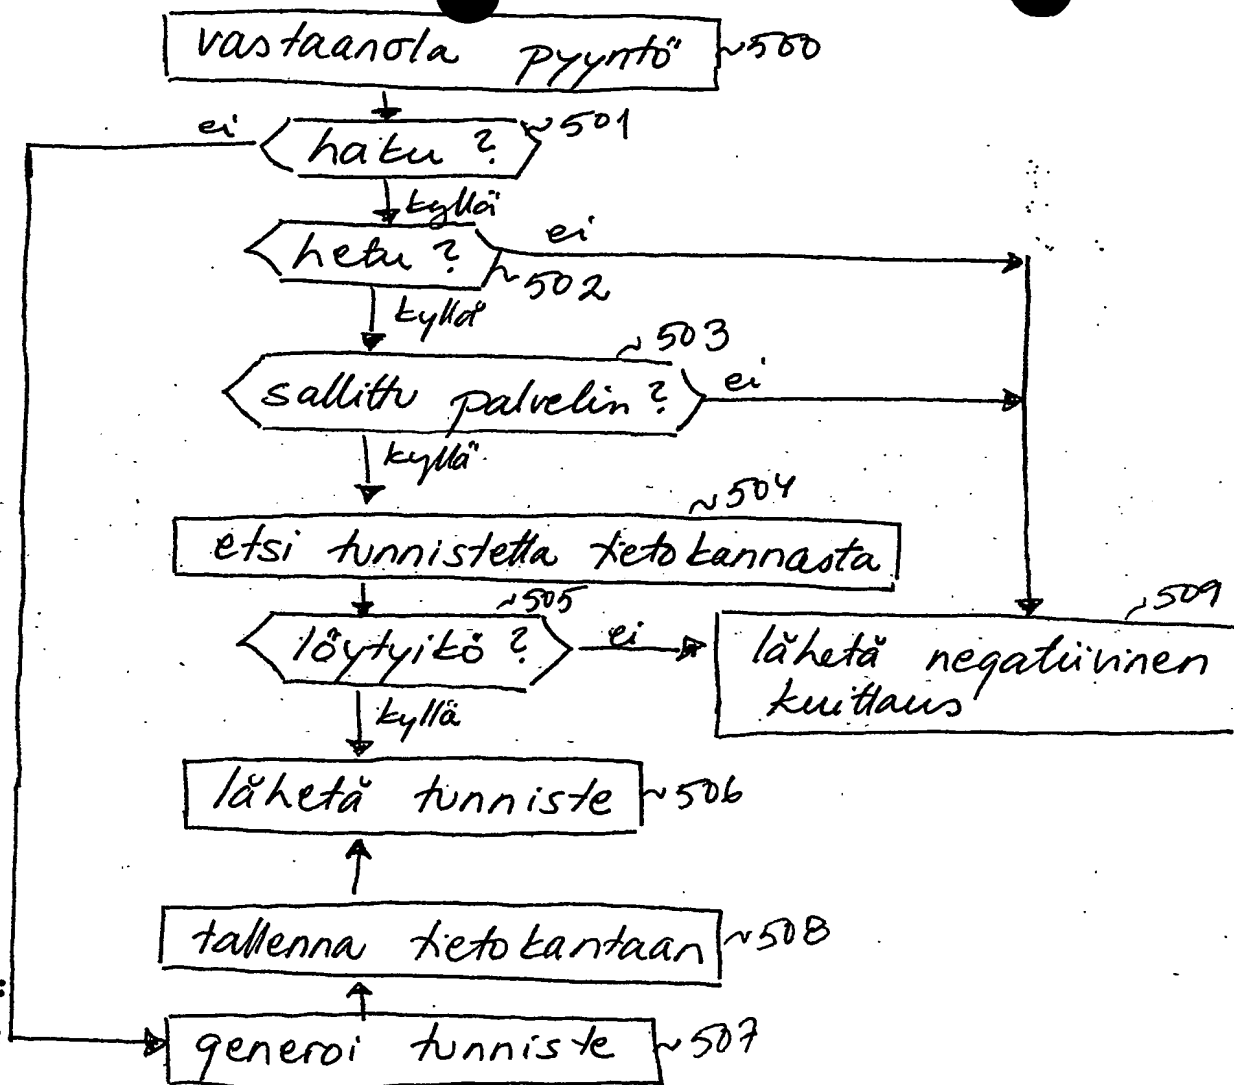 vastaanota pyyntö ~500
ei
haku ? ~501
kyllä
hetu ? ei
~502
kyllä
~503
sallittu palvelin ? ei
kyllä
~504
etsi tunnistetta tietokannasta
~505
löytyikö ? ei
~509
lähetä negatiivinen
kuittaus
kyllä
lähetä tunniste ~506
tallenna tietokantaan ~508
generoi tunniste ~507